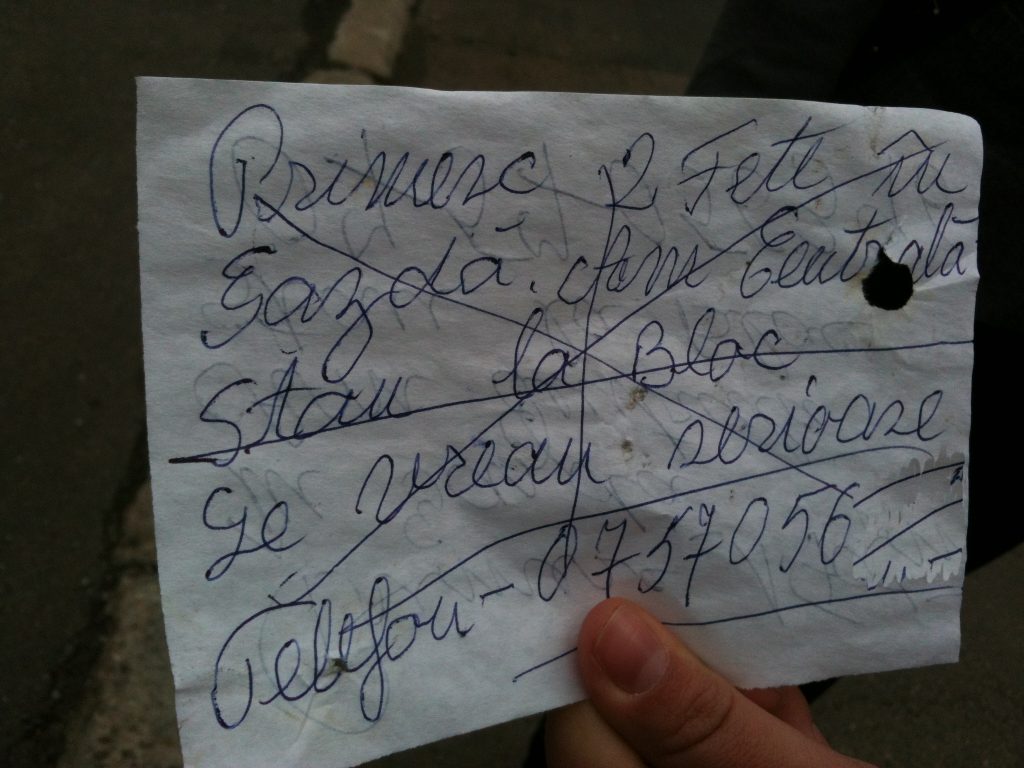 Primesc 2 Fete în
Gazdă. Am Centrală
Stau la Bloc
Se vreau serioase
Telefon - 0757056